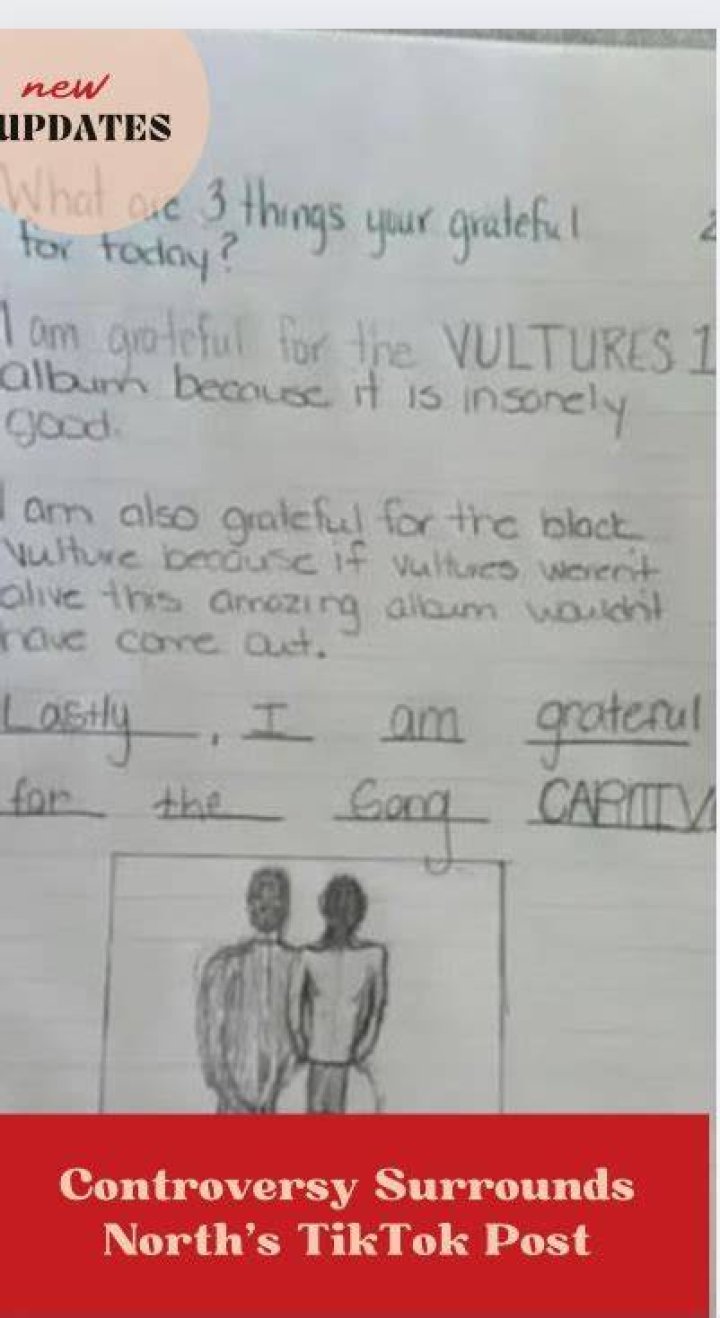 new
UPDATES
What are 3 things your grateful
for today?
I am grateful for the VULTURES 1
album because it is insanely
good.
I am also grateful for the black
vulture because if vultures weren't
alive this amazing album wouldn't
have come out.
Lastly, I am grateful
for the Song CARNIV
Controversy Surrounds
North's TikTok Post